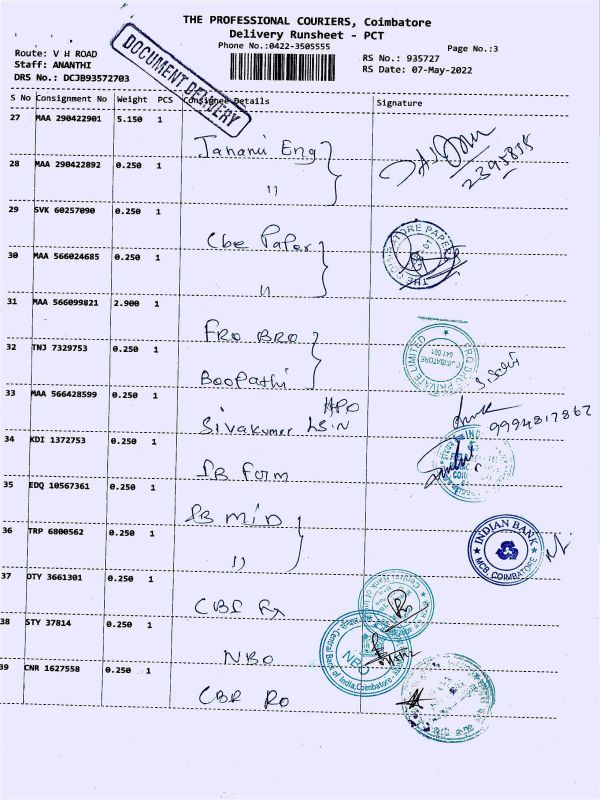 THE PROFESSIONAL COURIERS, Coimbatore
Delivery Runsheet - PCT
Phone No.:0422-3505555
Page No.:3
Route: V H ROAD
Staff: ANANTHI
DRS No.: DCJB93572703
RS No.: 935727
RS Date: 07-May-2022
DOCUMENT DELIVERY
S No Consignment No Weight PCS Consignee Details Signature
27 MAA 290422901 5.150 1
Janani Eng
28 MAA 290422892 0.250 1
"
29 SVK 60257090 0.250 1
Cbe Paper
30 MAA 566024685 0.250 1
"
31 MAA 566099821 2.900 1
FRO BRO
32 TNJ 7329753 0.250 1
Boopathi
33 MAA 566428599 0.250 1
Sivakumar
9994817862
34 KDI 1372753 0.250 1
35 EDQ 10567361 0.250 1
36 TRP 6800562 0.250 1
"
INDIAN BANK
MCB, COIMBATORE
37 OTY 3661301 0.250 1
38 STY 37814 0.250 1
NBO
NBO
Central Bank of India, Coimbatore
39 CNR 1627558 0.250 1
CBR RO